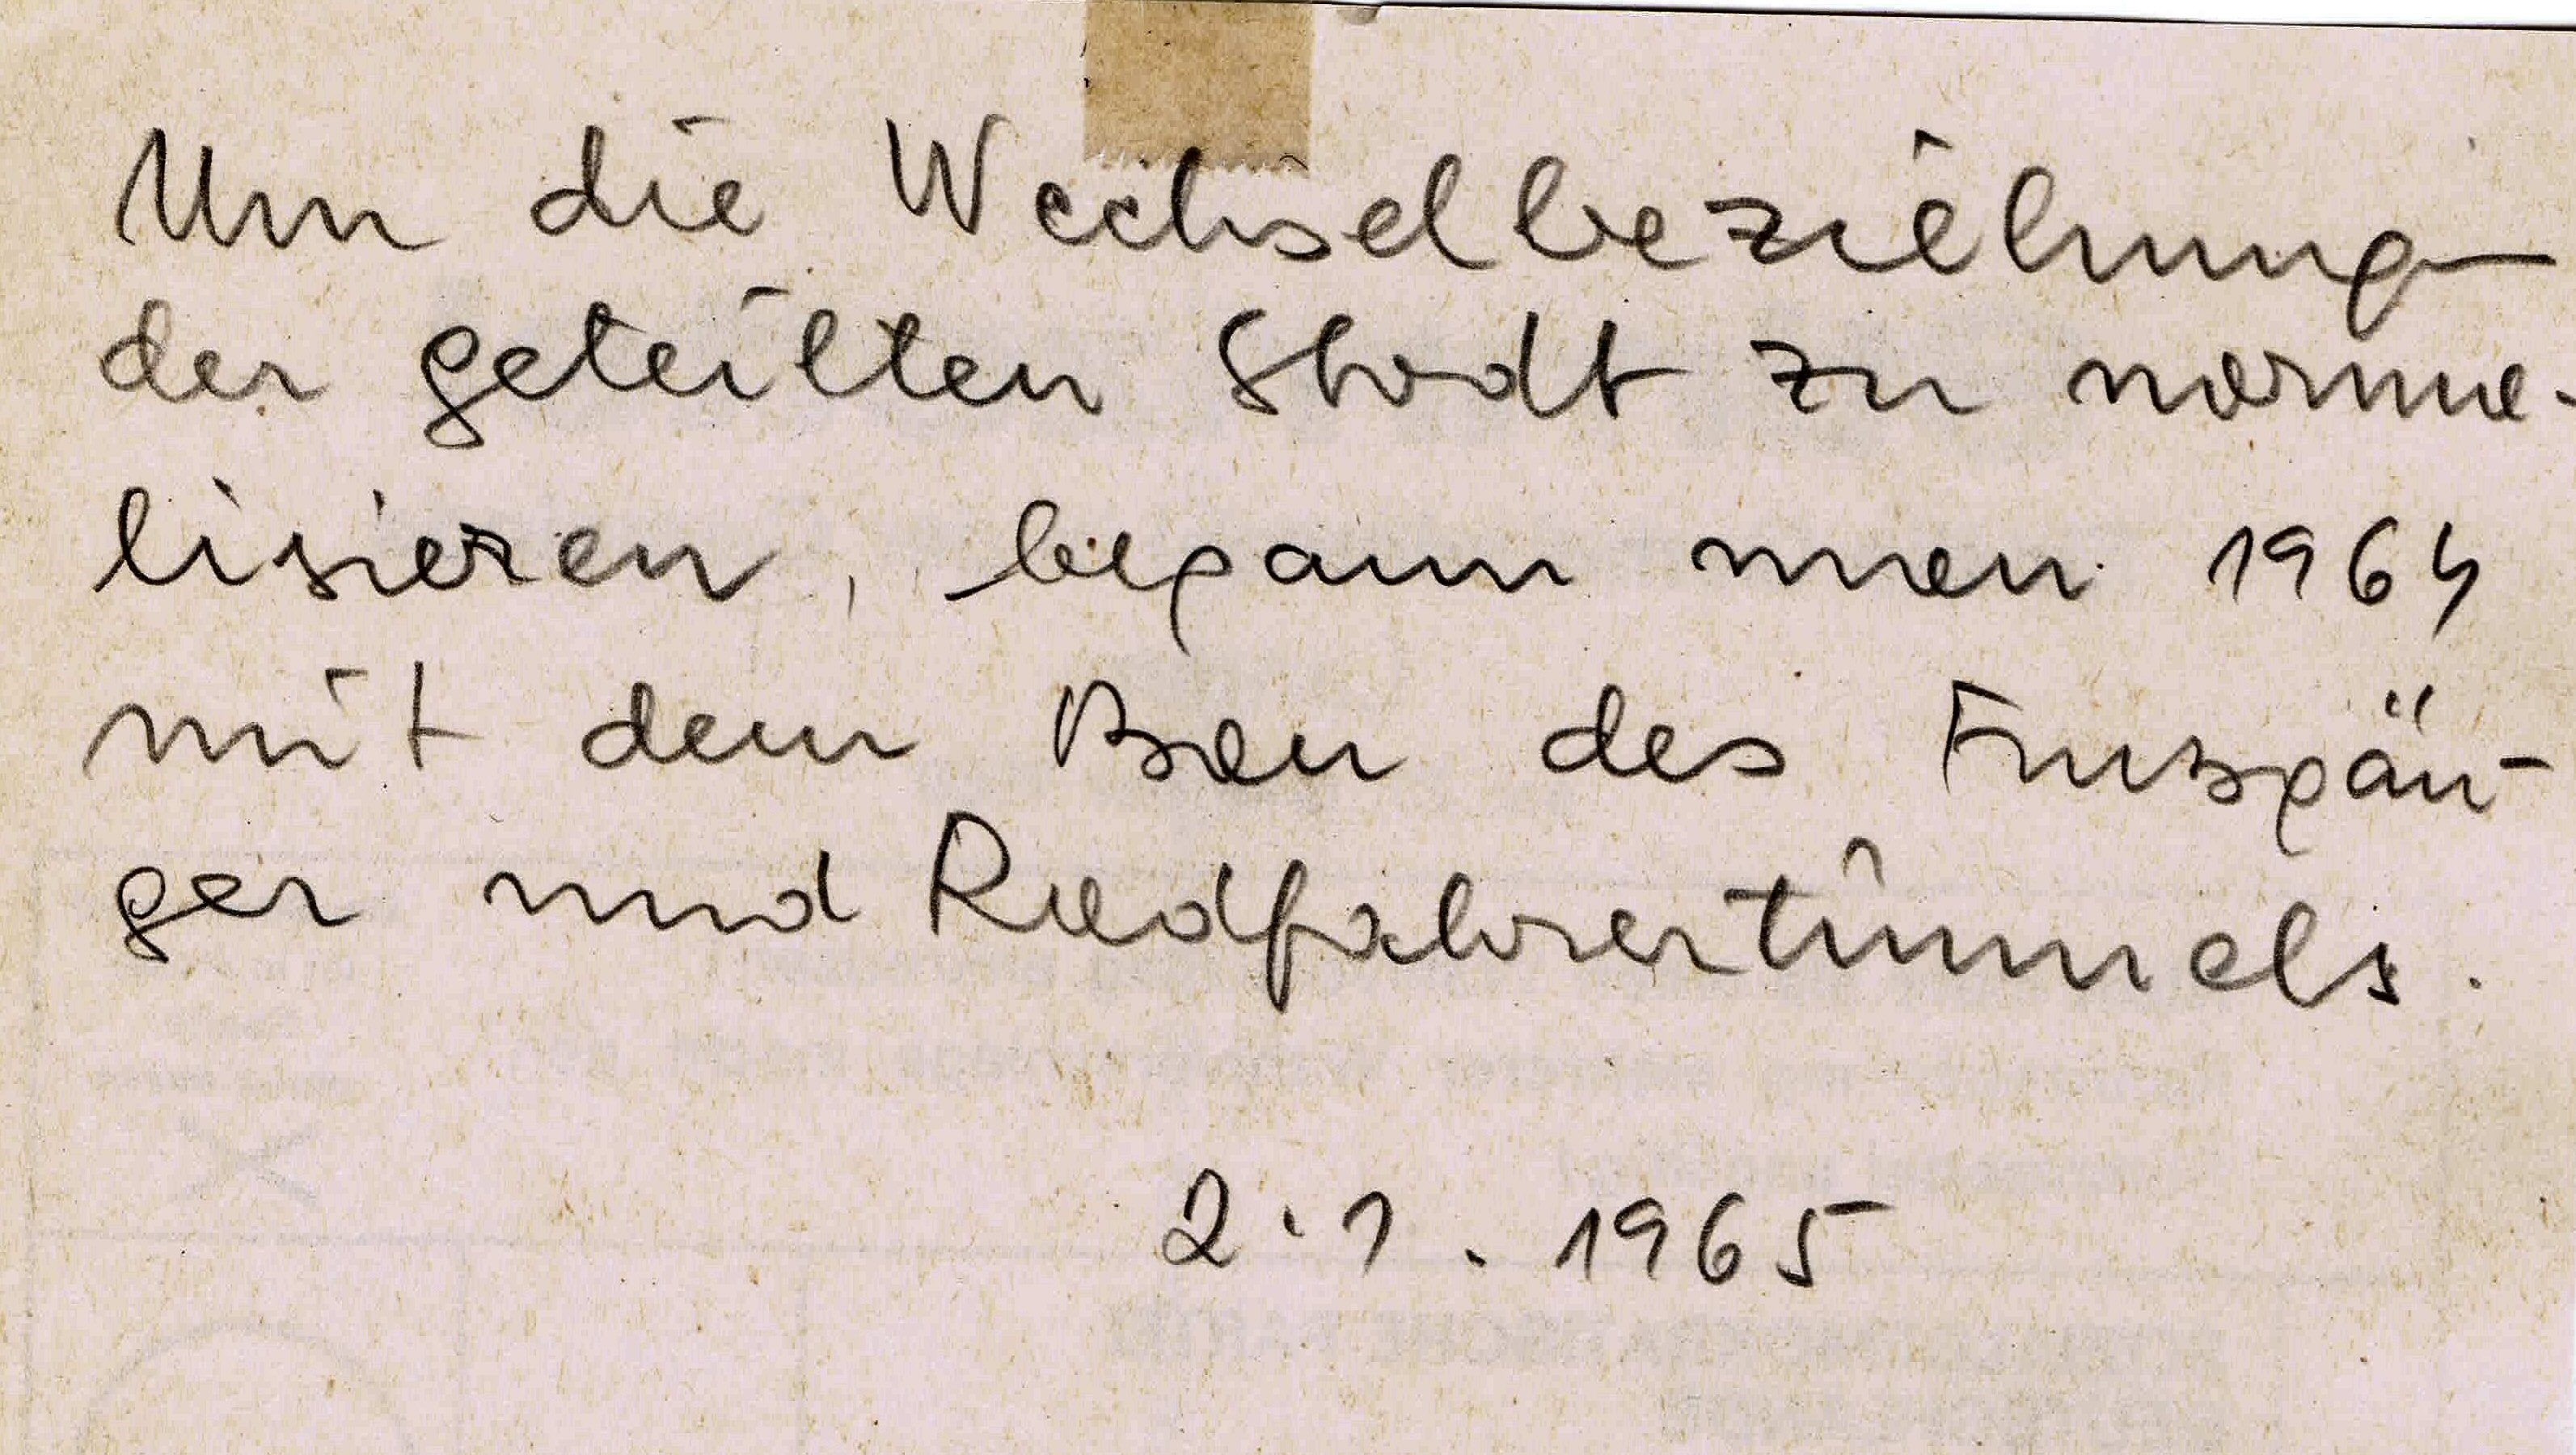 Um die Wechselbeziehung
der geteilten Stadt zu norma-
lisieren, begann man 1964
mit dem Bau des Fussgän-
ger und Radfahrertunnels.
2.1.1965